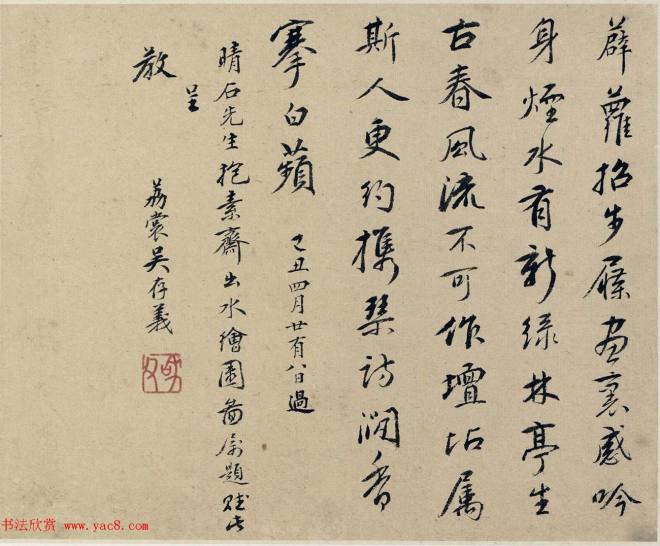 薜蘿招步屧画裏感吟
身煙水有新綠林亭生
古春風流不可作壇坫属
斯人更約攜琹訪澗香
搴白蘋 己丑四月廿有八日過
晴石先生抱素齋出水繪園圖属題賦此
呈
教
荔裳吴存義
书法欣赏 www.yac8.com